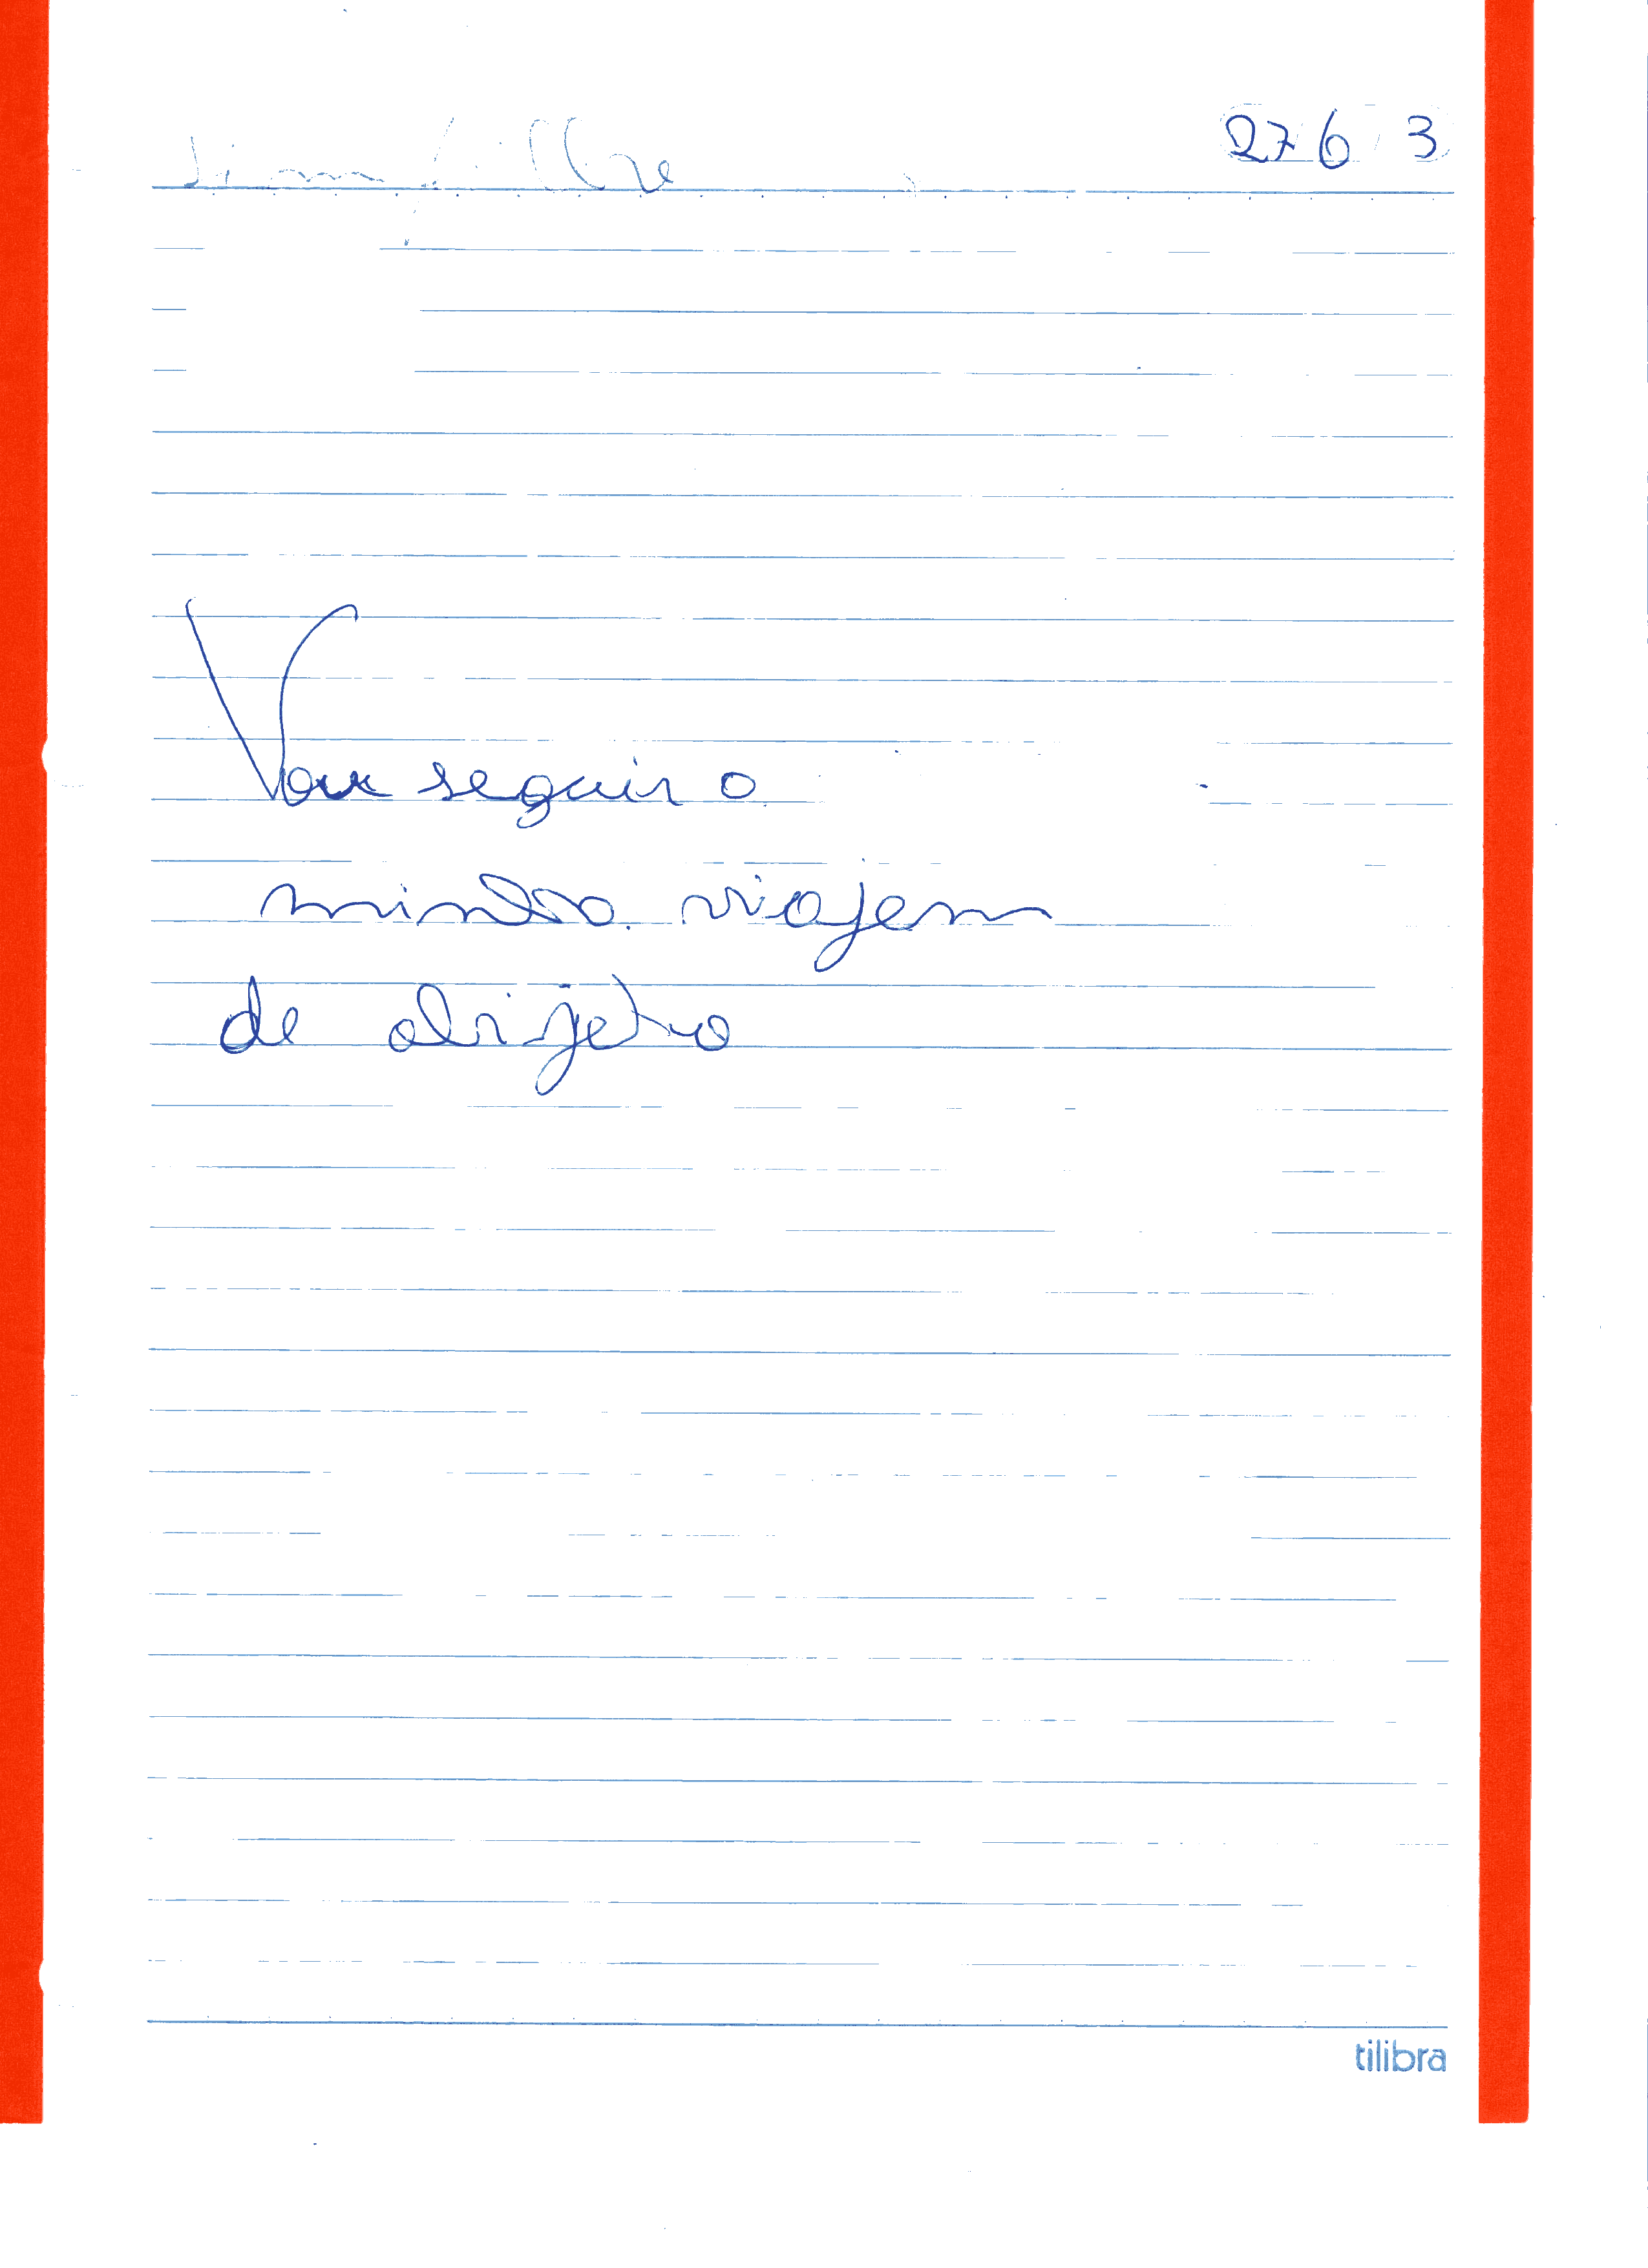 27 6 3
Vou seguir o
minha viajem
de obijetvo
tilibra